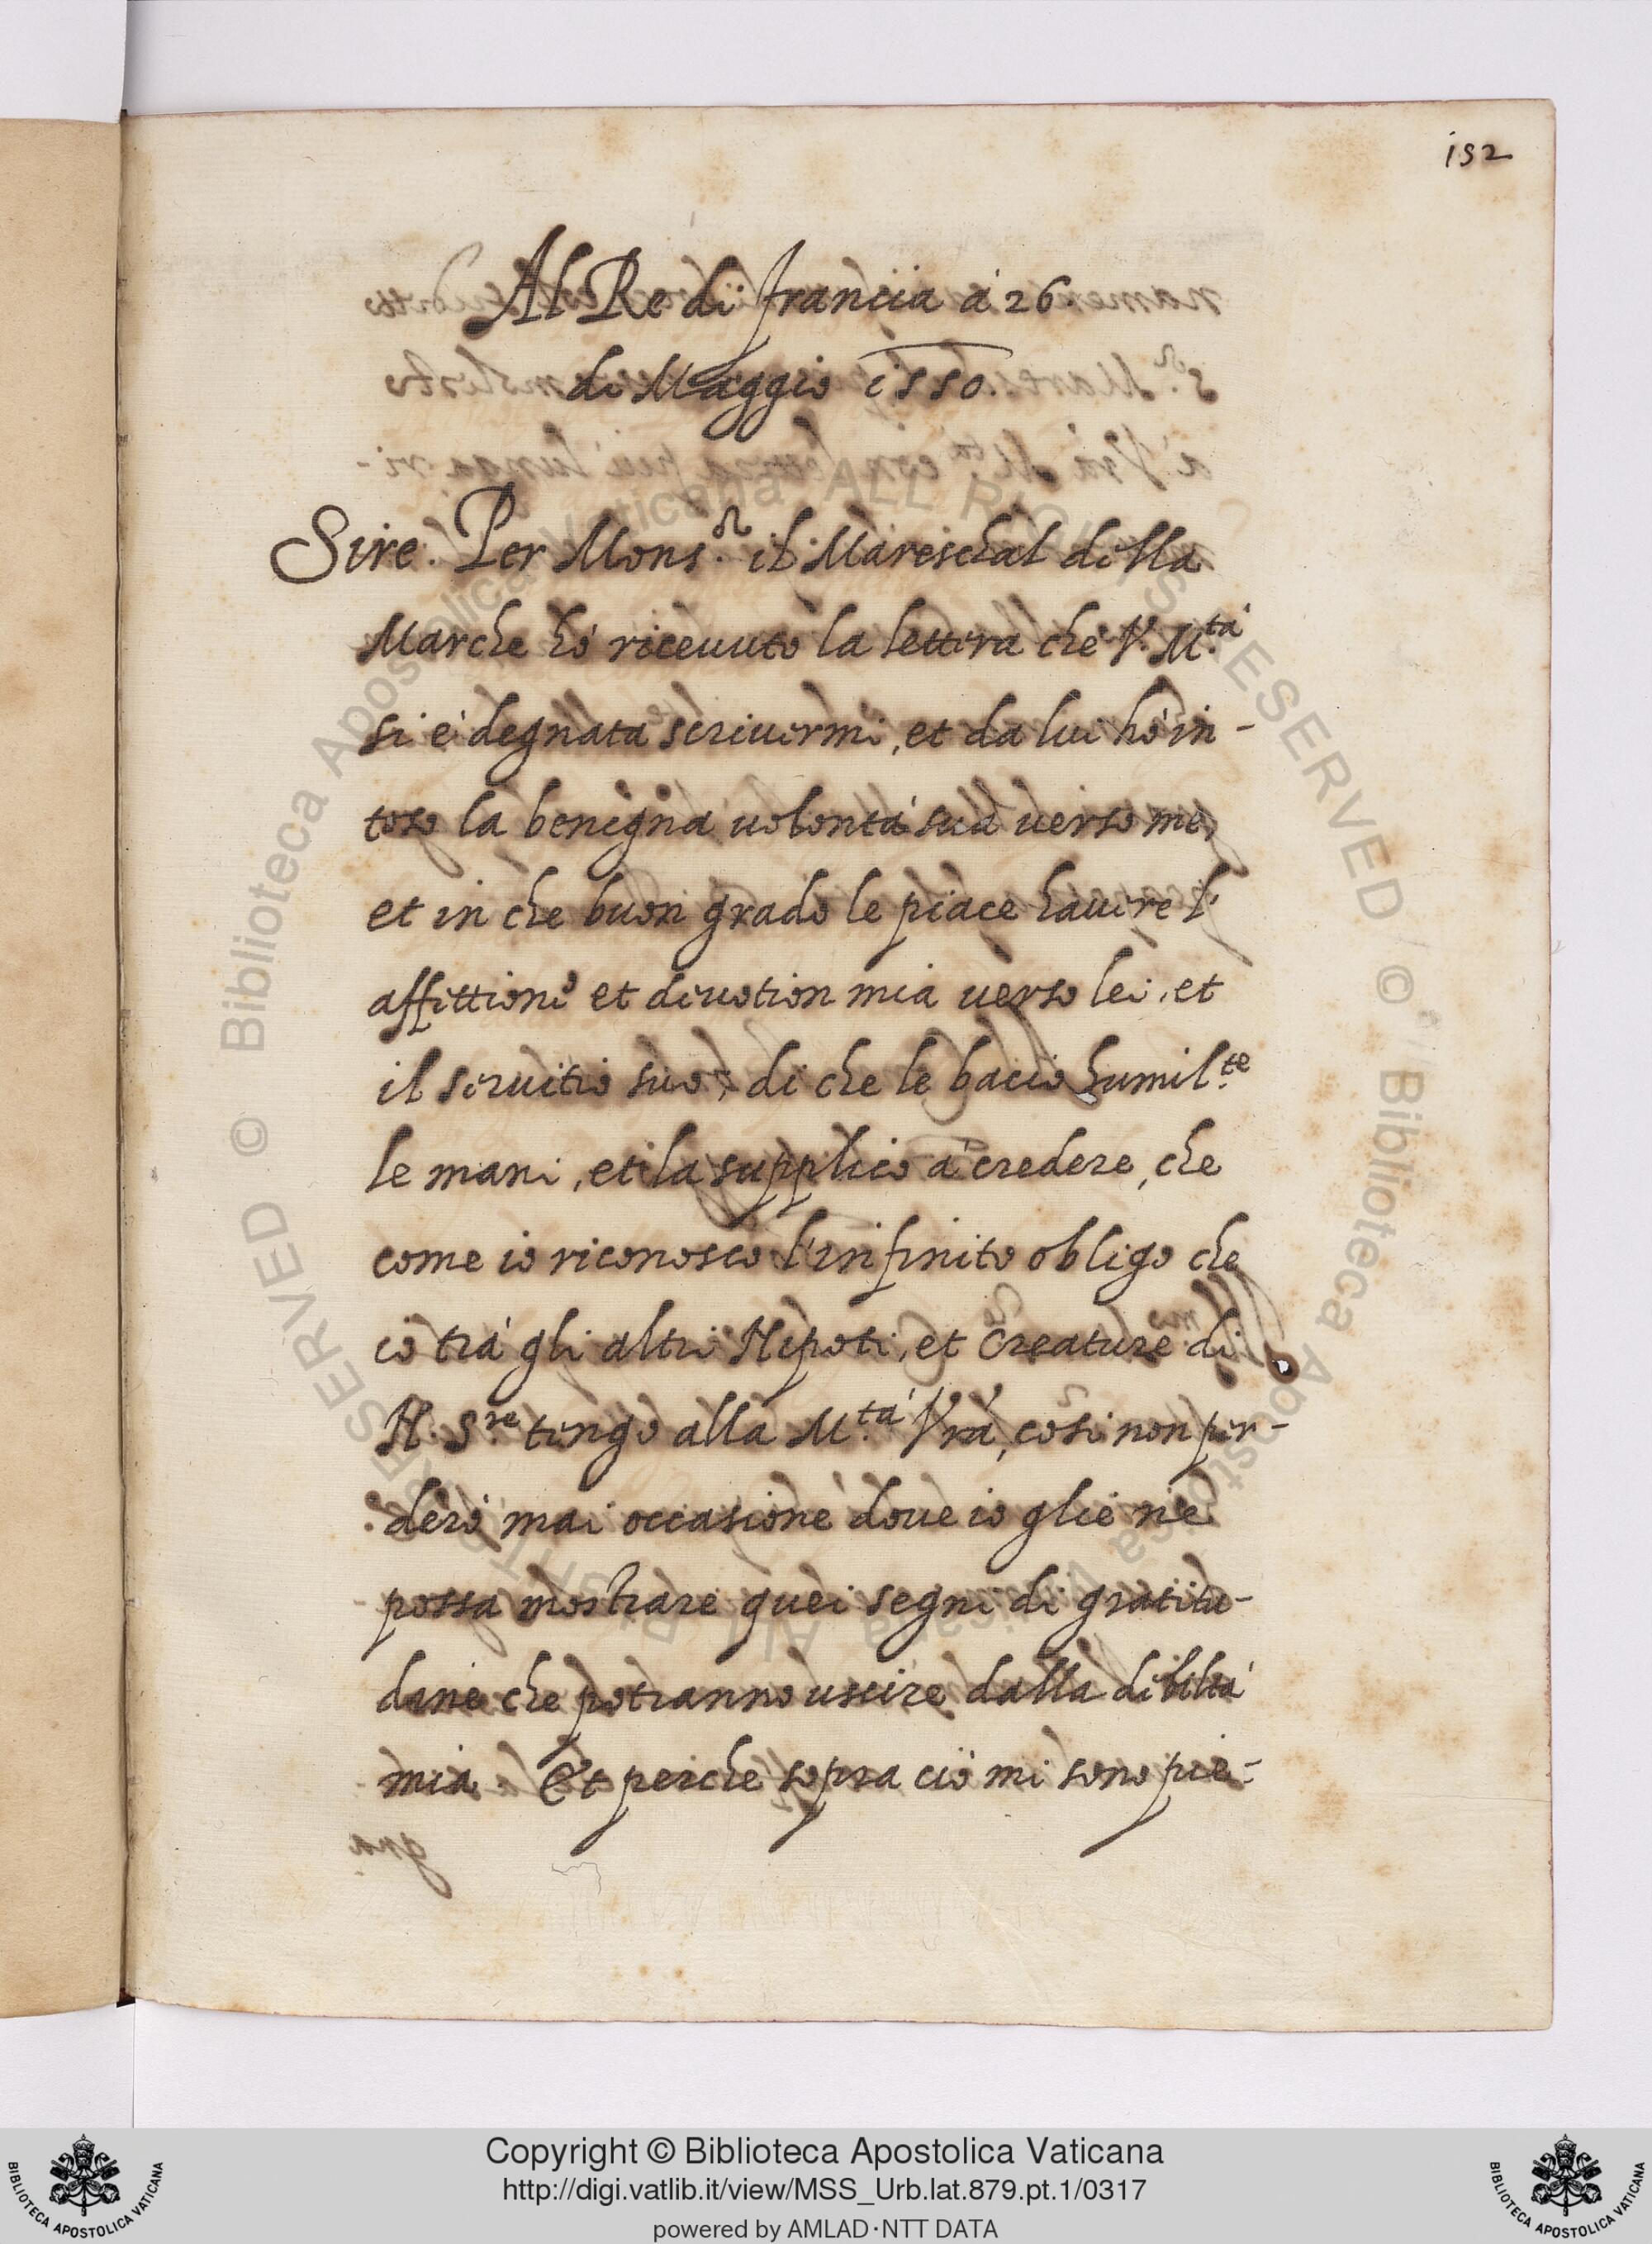 152
Al Re di Francia à 26
di Maggio 1550.
Sire. Per Mons.r il Mareschal della
Marche hò riceuuto la lettera che V. M.tà
si è degnata scriuermi, et da lui hò in-
teso la benigna uolontà sua uerso me,
et in che buon grado le piace hauere l'
affettione et deuotion mia uerso lei, et
il seruitio suo, di che le bacio humil.te
le mani, et la supplico à credere, che
come io riconosco l'infinito obligo che
io trà gli altri Nepoti, et Creature di
N. S.re tengo alla M.tà Vrà, così non per-
derò mai occasione doue io glie ne
possa mostrare quei segni di gratitu-
dine che potranno uscire dalla debiltà
mia. Et perche sopra ciò mi sono pie-
Copyright © Biblioteca Apostolica Vaticana
http://digi.vatlib.it/view/MSS_Urb.lat.879.pt.1/0317
powered by AMLAD·NTT DATA
BIBLIOTECA APOSTOLICA VATICANA
BIBLIOTECA APOSTOLICA VATICANA
© Biblioteca Apostolica Vaticana ALL RIGHTS RESERVED © Biblioteca Apostolica Vaticana ALL RIGHTS RESERVED